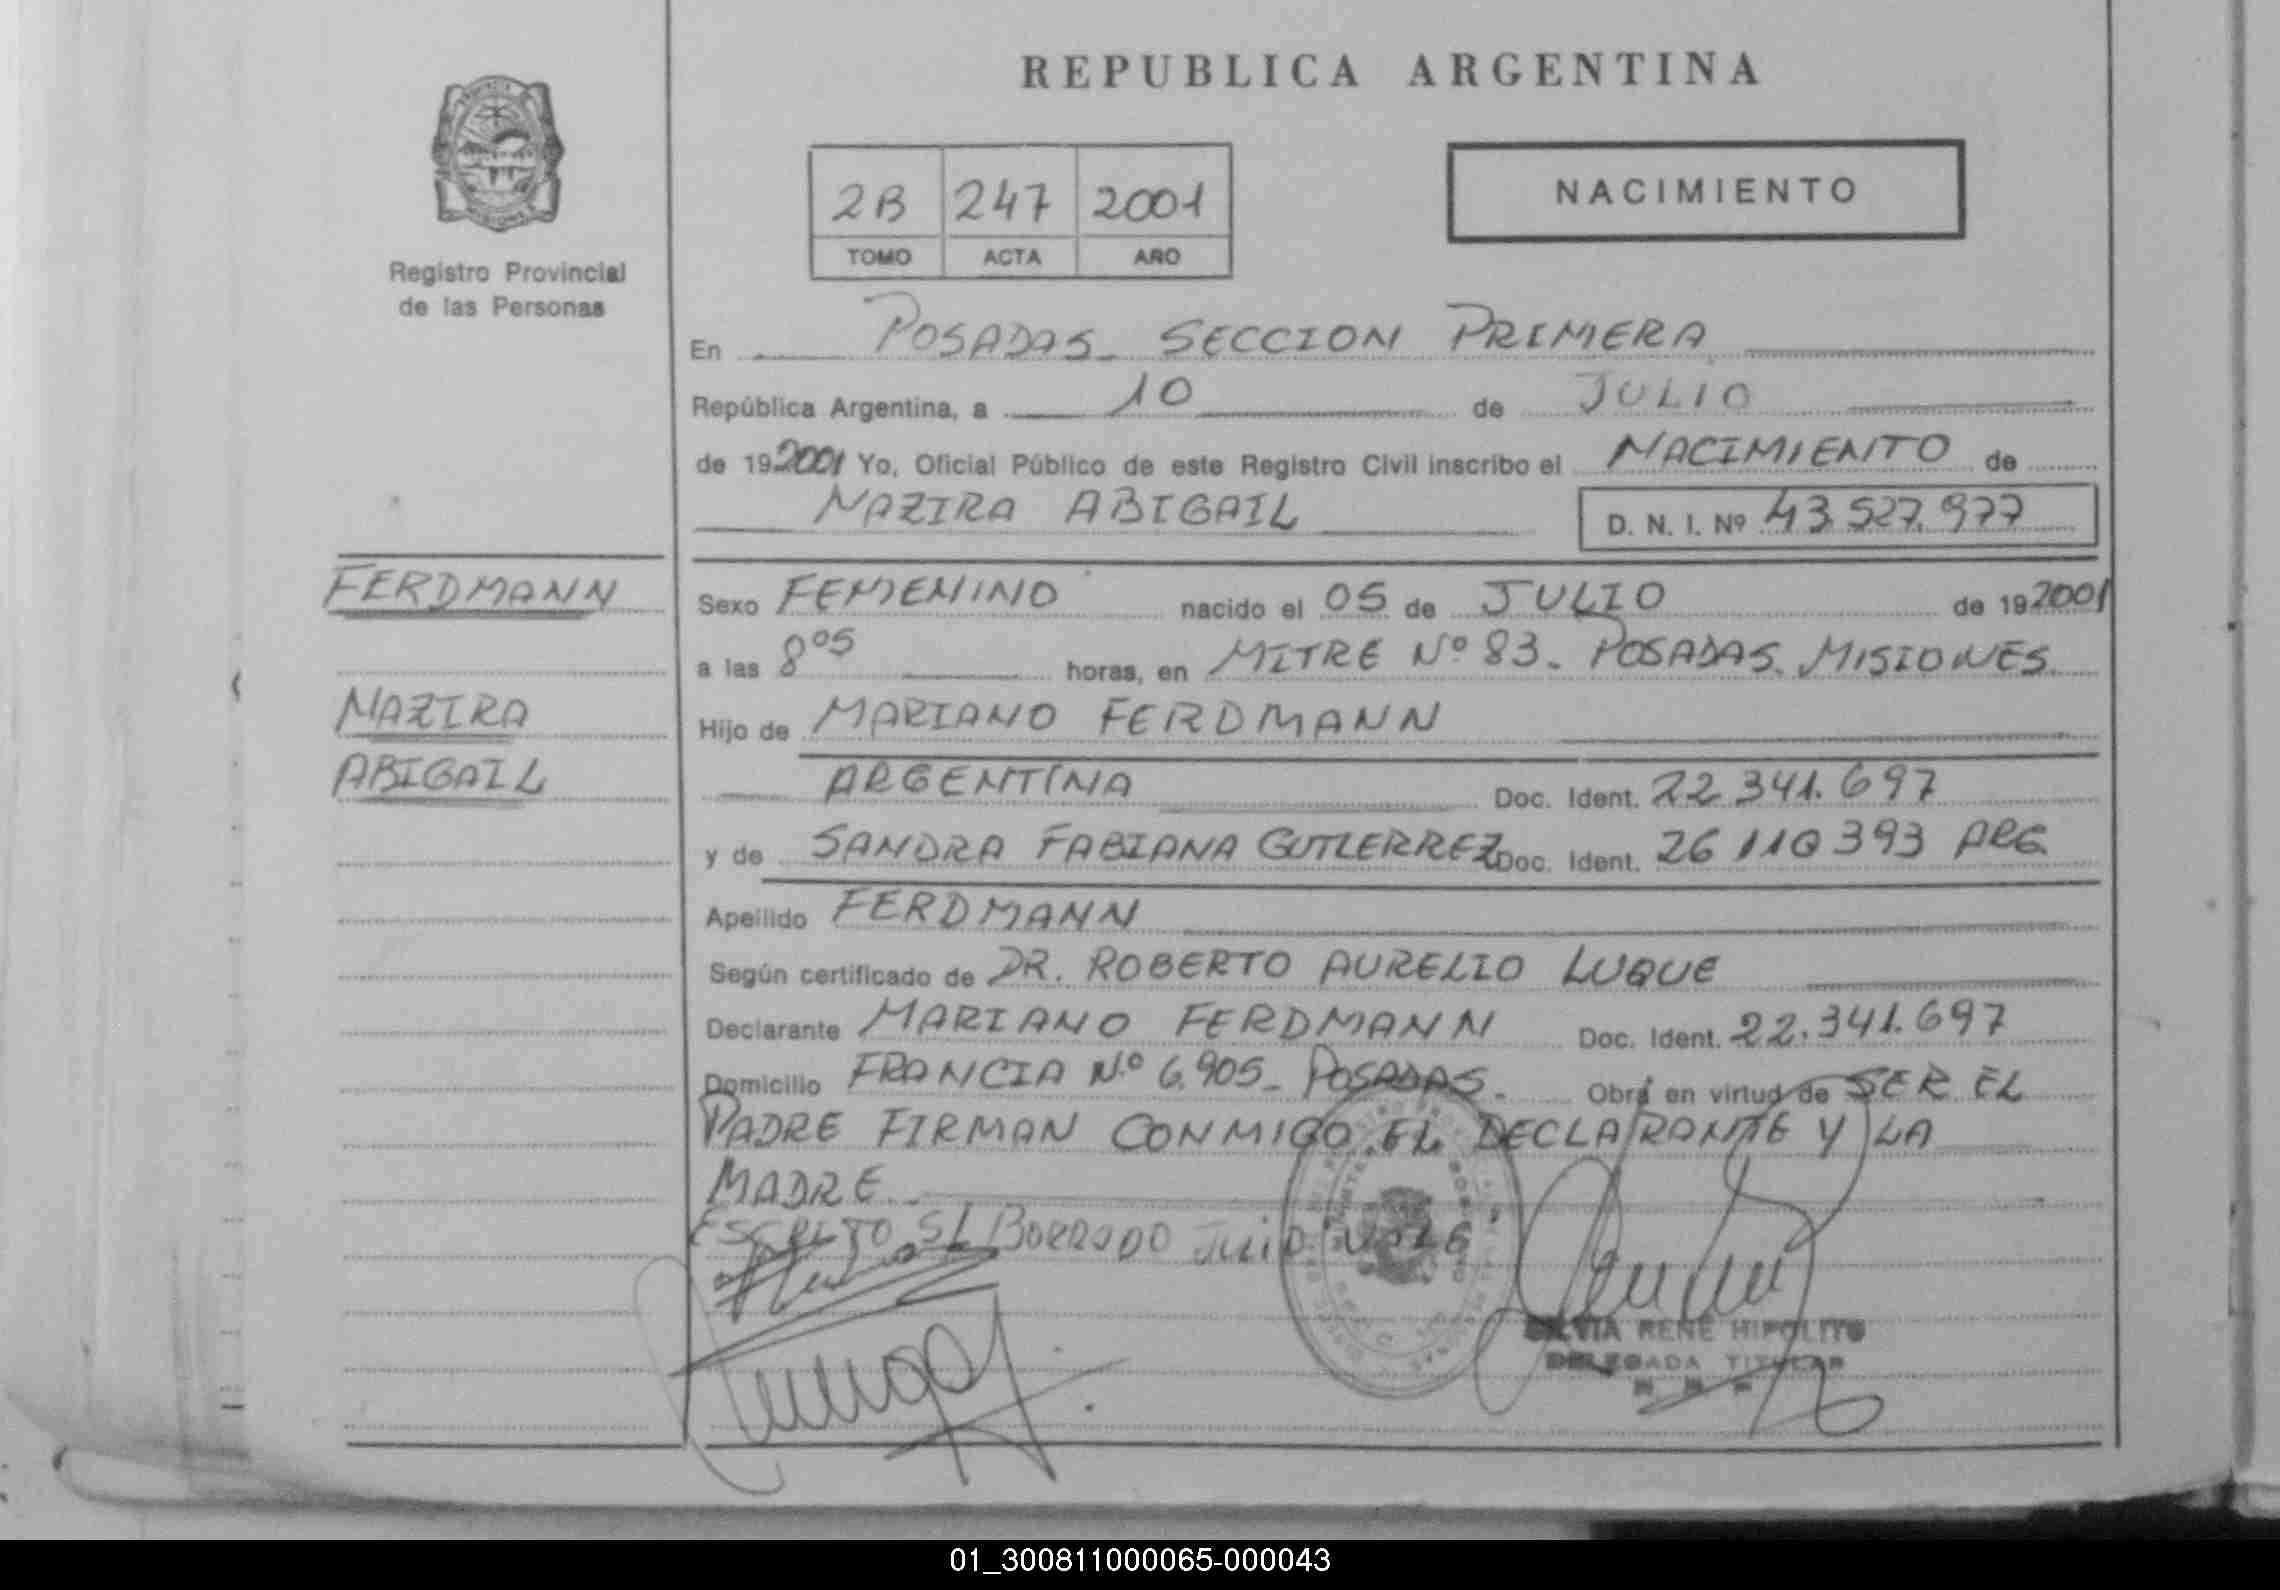 REPUBLICA ARGENTINA
2B 247 2001
TOMO ACTA AÑO
NACIMIENTO
Registro Provincial
de las Personas
En POSADAS SECCION PRIMERA
República Argentina, a 10 de JULIO
de 192001 Yo, Oficial Público de este Registro Civil inscribo el NACIMIENTO de
NAZIRA ABIGAIL D. N. I. Nº 43.527.977
FERDMANN
NAZIRA
ABIGAIL
Sexo FEMENINO nacido el 05 de JULIO de 192001
a las 8⁰⁵ horas, en MITRE Nº 83. POSADAS. MISIONES.
Hijo de MARIANO FERDMANN
ARGENTINA Doc. Ident. 22.341.697
y de SANDRA FABIANA GUTIERREZ Doc. Ident. 26 110 393 ARG.
Apellido FERDMANN
Según certificado de DR. ROBERTO AURELIO LUQUE
Declarante MARIANO FERDMANN Doc. Ident. 22.341.697
Domicilio FRANCIA N.º 6.905. POSADAS. Obra en virtud de SER EL
PADRE FIRMAN CONMIGO EL DECLARANTE Y LA
MADRE.
ESCRITO S/ BORRADO JULIO VALE
SILVIA RENE HIPOLITO
DELEGADA TITULAR
01_300811000065-000043